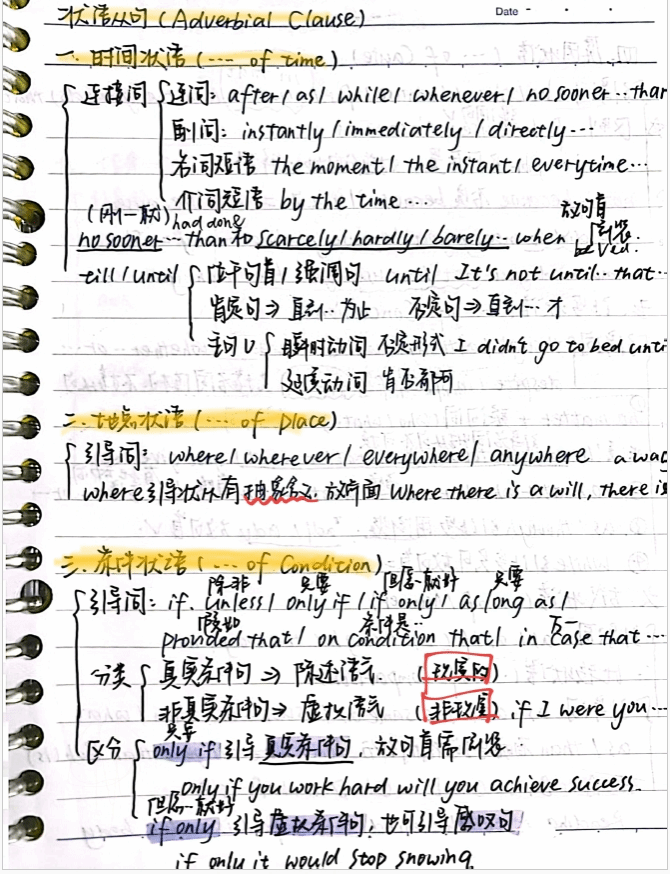 状语从句 (Adverbial Clause)
Date
一. 时间状语 (… of time)
连接词 连词: after / as / while / whenever / no sooner … than
副词: instantly / immediately / directly …
名词短语 the moment / the instant / everytime …
介词短语 by the time …
(刚一就) had done 放句首
no sooner … than 和 scarcely / hardly / barely … when 倒装 Ved.
till / until 位于句首 / 强调句 until It's not until … that …
肯定句 ⇒ 直到…为止 否定句 ⇒ 直到…才
主句 V 瞬时动词 否定形式 I didn't go to bed unti
延续动词 肯否都可
二. 地点状语 (… of place)
引导词: where / wherever / everywhere / anywhere
where 引导状从有抽象含义. 放前面 Where there is a will, there is
三. 条件状语 (… of Condition)
除非 只要 但愿…就好 只要
引导词: if. unless / only if / if only / as long as /
假如 条件是… 万一
provided that / on condition that / in case that …
分类 真实条件句 ⇒ 陈述语气. (现实的)
非真实条件句 ⇒ 虚拟语气 (非现实) if I were you …
只要
区分 only if 引导真实条件句, 放句首需倒装.
only if you work hard will you achieve success.
但愿…就好
if only 引导虚拟条件句, 也可引导感叹句
if only it would stop snowing.